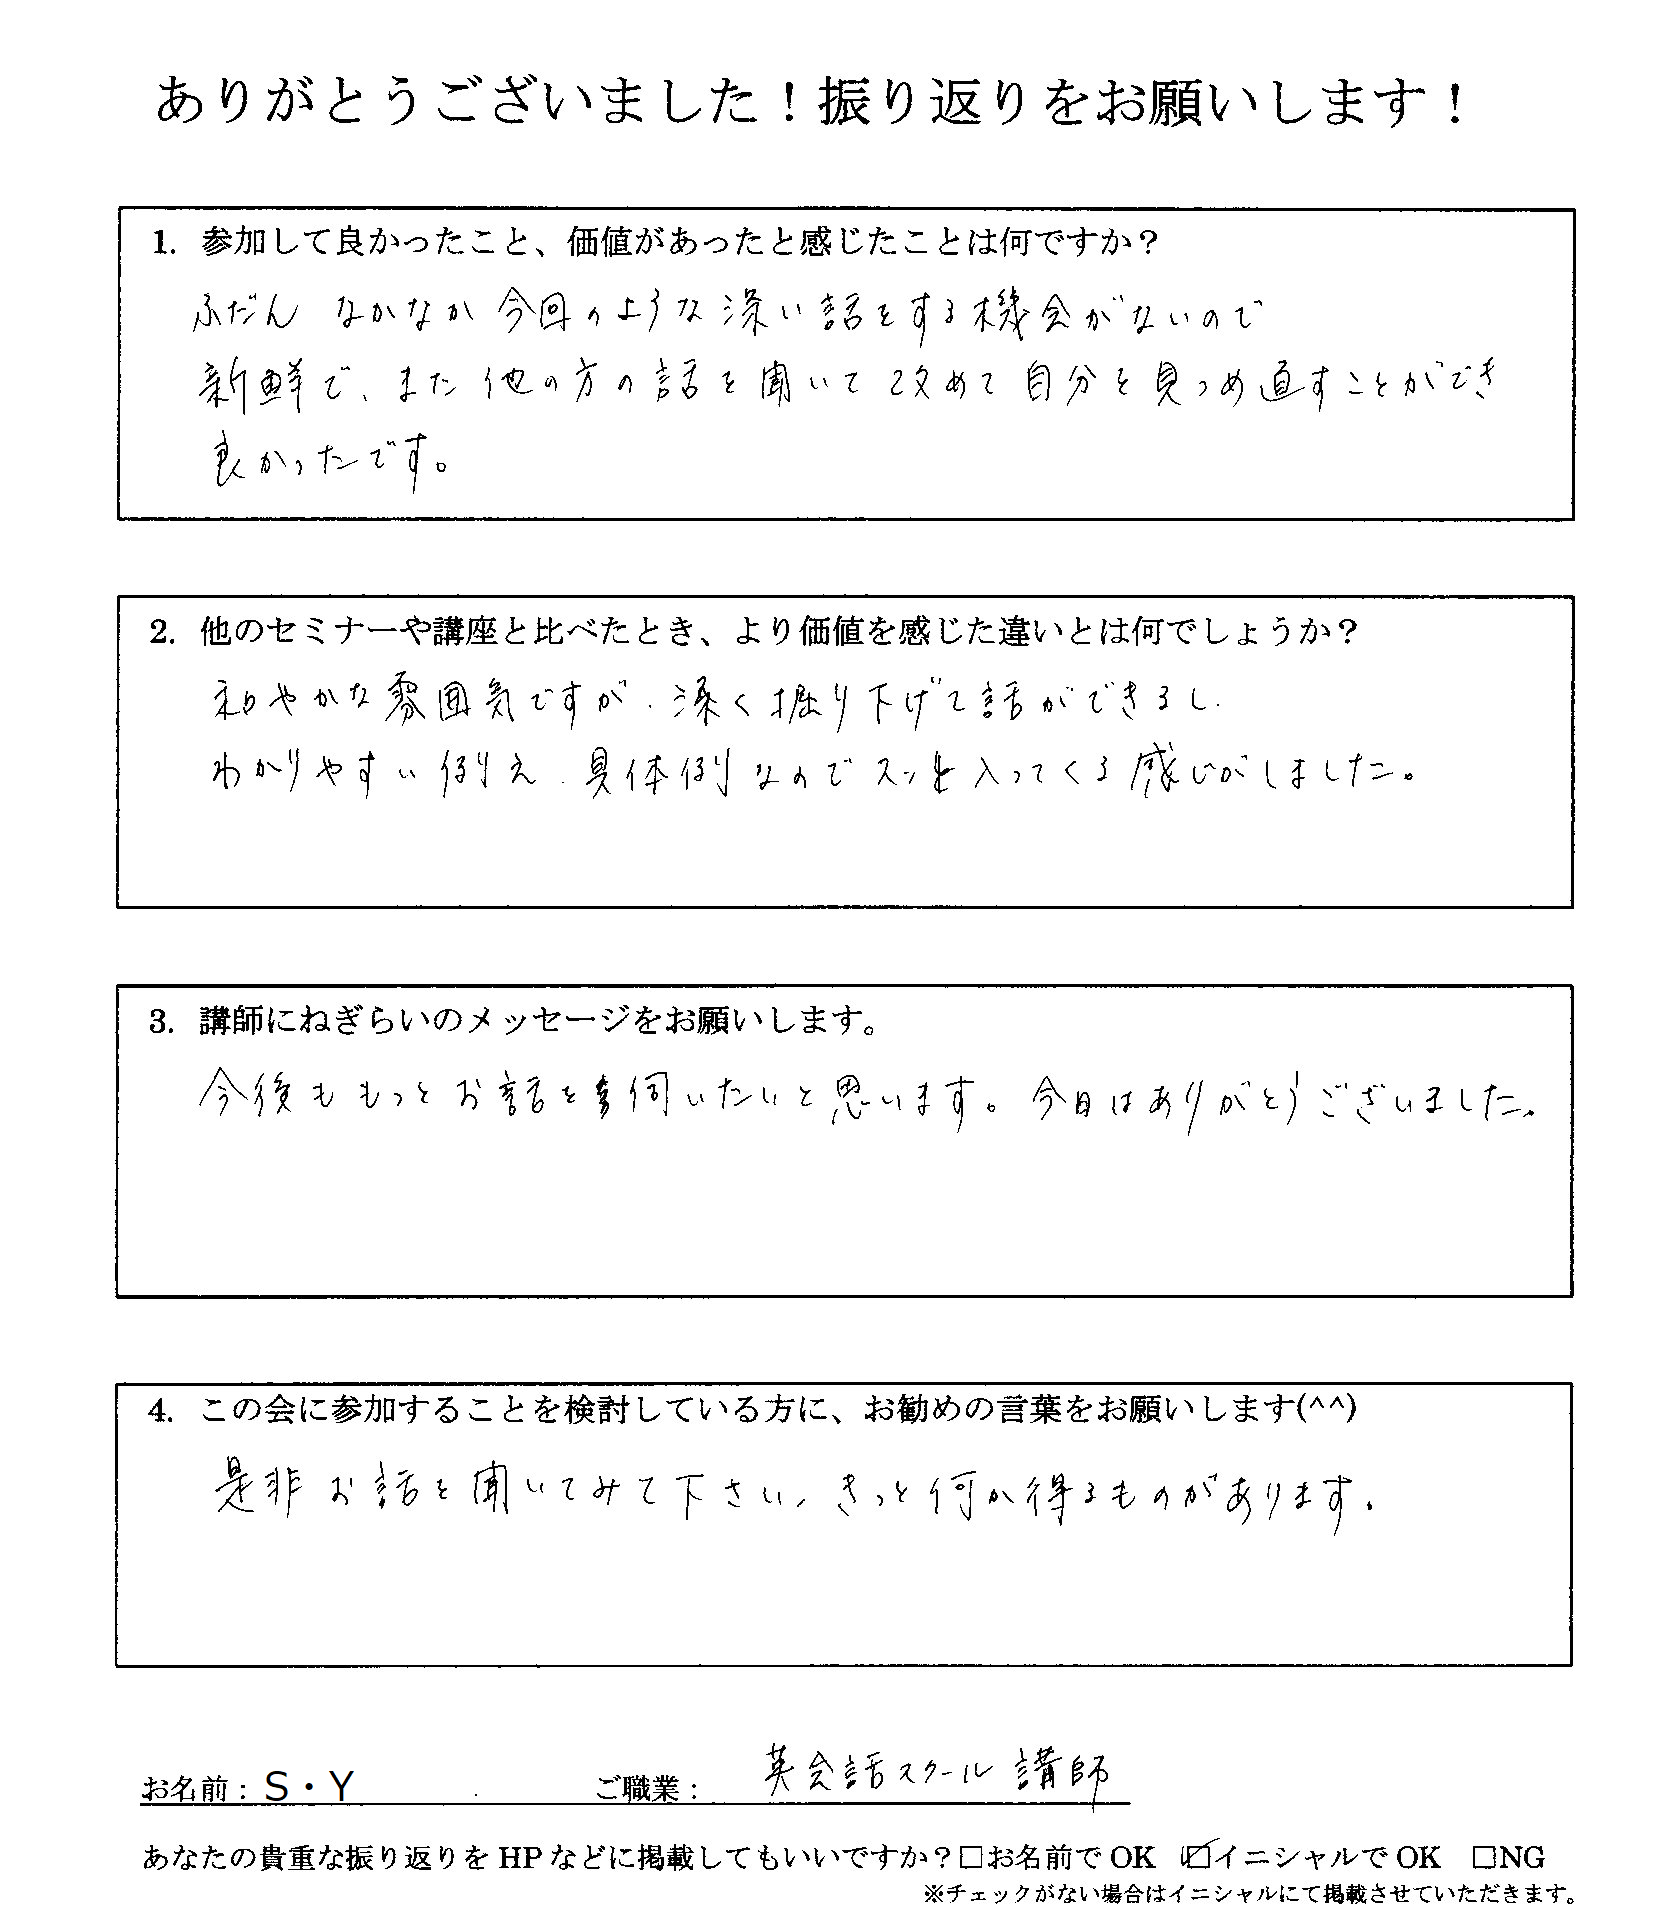 ありがとうございました！振り返りをお願いします！
1. 参加して良かったこと、価値があったと感じたことは何ですか？
ふだん なかなか 今回のような深い話をする機会がないので
新鮮で、また他の方の話を聞いて改めて自分を見つめ直すことができ
良かったです。
2. 他のセミナーや講座と比べたとき、より価値を感じた違いとは何でしょうか？
和やかな雰囲気ですが、深く掘り下げて話ができるし、
わかりやすい例え、具体例なのでスッと入ってくる感じがしました。
3. 講師にねぎらいのメッセージをお願いします。
今後ももっとお話を伺いたいと思います。今日はありがとうございました。
4. この会に参加することを検討している方に、お勧めの言葉をお願いします(^^)
是非お話を聞いてみて下さい、きっと何か得るものがあります。
お名前：S・Y ご職業： 英会話スクール 講師
あなたの貴重な振り返りを HP などに掲載してもいいですか？□お名前で OK ☑イニシャルで OK □NG
※チェックがない場合はイニシャルにて掲載させていただきます。